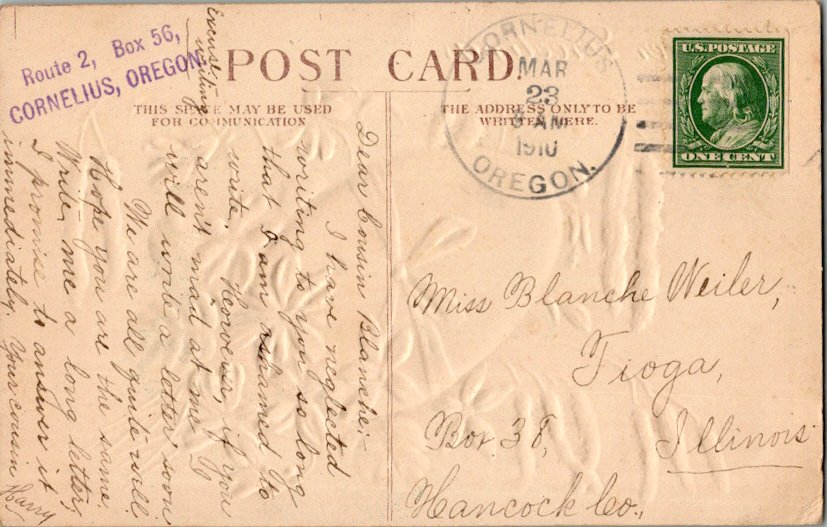 Route 2, Box 56,
CORNELIUS, OREGON
POST CARD.
THIS SPACE MAY BE USED
FOR COMMUNICATION
THE ADDRESS ONLY TO BE
WRITTEN HERE.
CORNELIUS
MAR
23
AM
1910
OREGON.
U.S. POSTAGE
ONE CENT
Excuse
writing
Dear Cousin Blanche:-
I have neglected
writing to you so long
that I am ashamed to
write. However, if you
aren't mad at me I
will write a letter soon
We are all quite well.
Hope you are the same.
Write me a long letter,
I promise to answer it
immediately. Your cousin
Harry
Miss Blanche Weiler,
Tioga,
Box 38, Illinois
Hancock Co.,